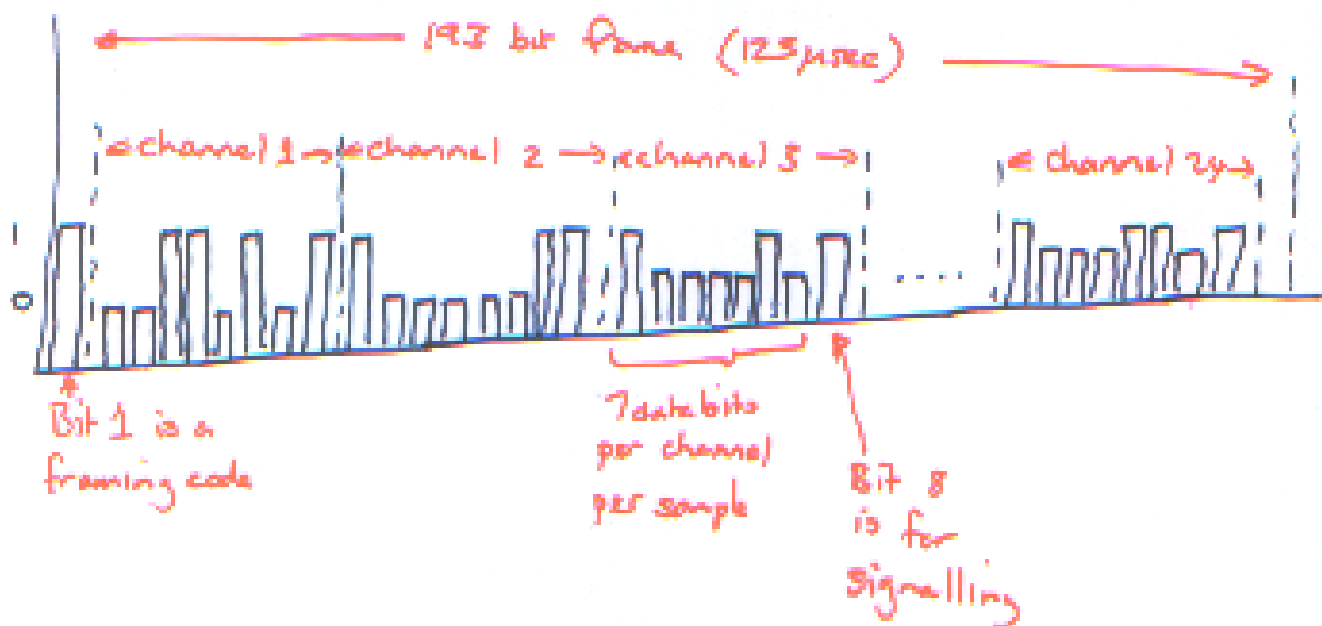 193 bit frame (125μsec)
channel 1
channel 2
channel 3
channel 24
1
0
.....
Bit 1 is a
framing code
7 data bits
per channel
per sample
Bit 8
is for
signalling